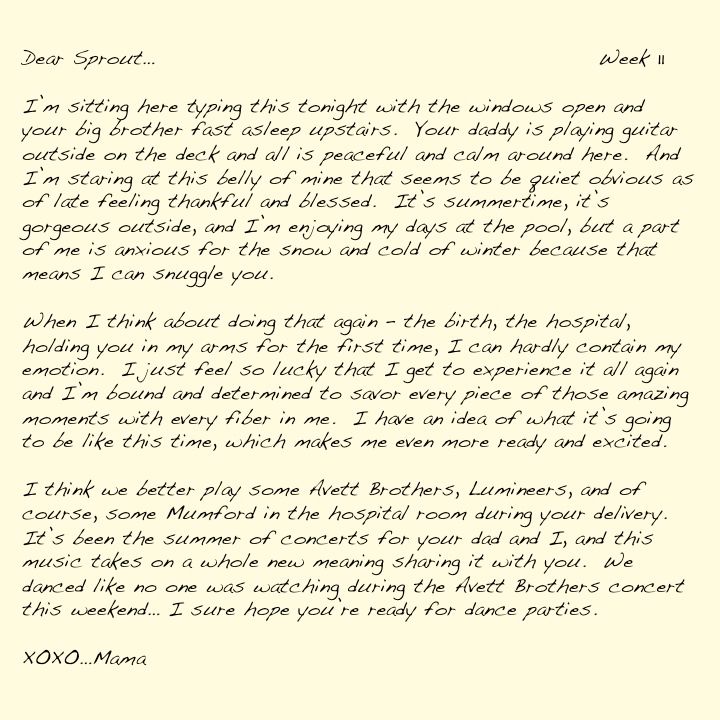 Dear Sprout... Week 11
I`m sitting here typing this tonight with the windows open and
your big brother fast asleep upstairs. Your daddy is playing guitar
outside on the deck and all is peaceful and calm around here. And
I`m staring at this belly of mine that seems to be quiet obvious as
of late feeling thankful and blessed. It`s summertime, it`s
gorgeous outside, and I`m enjoying my days at the pool, but a part
of me is anxious for the snow and cold of winter because that
means I can snuggle you.
When I think about doing that again - the birth, the hospital,
holding you in my arms for the first time, I can hardly contain my
emotion. I just feel so lucky that I get to experience it all again
and I`m bound and determined to savor every piece of those amazing
moments with every fiber in me. I have an idea of what it`s going
to be like this time, which makes me even more ready and excited.
I think we better play some Avett Brothers, Lumineers, and of
course, some Mumford in the hospital room during your delivery.
It`s been the summer of concerts for your dad and I, and this
music takes on a whole new meaning sharing it with you. We
danced like no one was watching during the Avett Brothers concert
this weekend... I sure hope you`re ready for dance parties.
XOXO...Mama